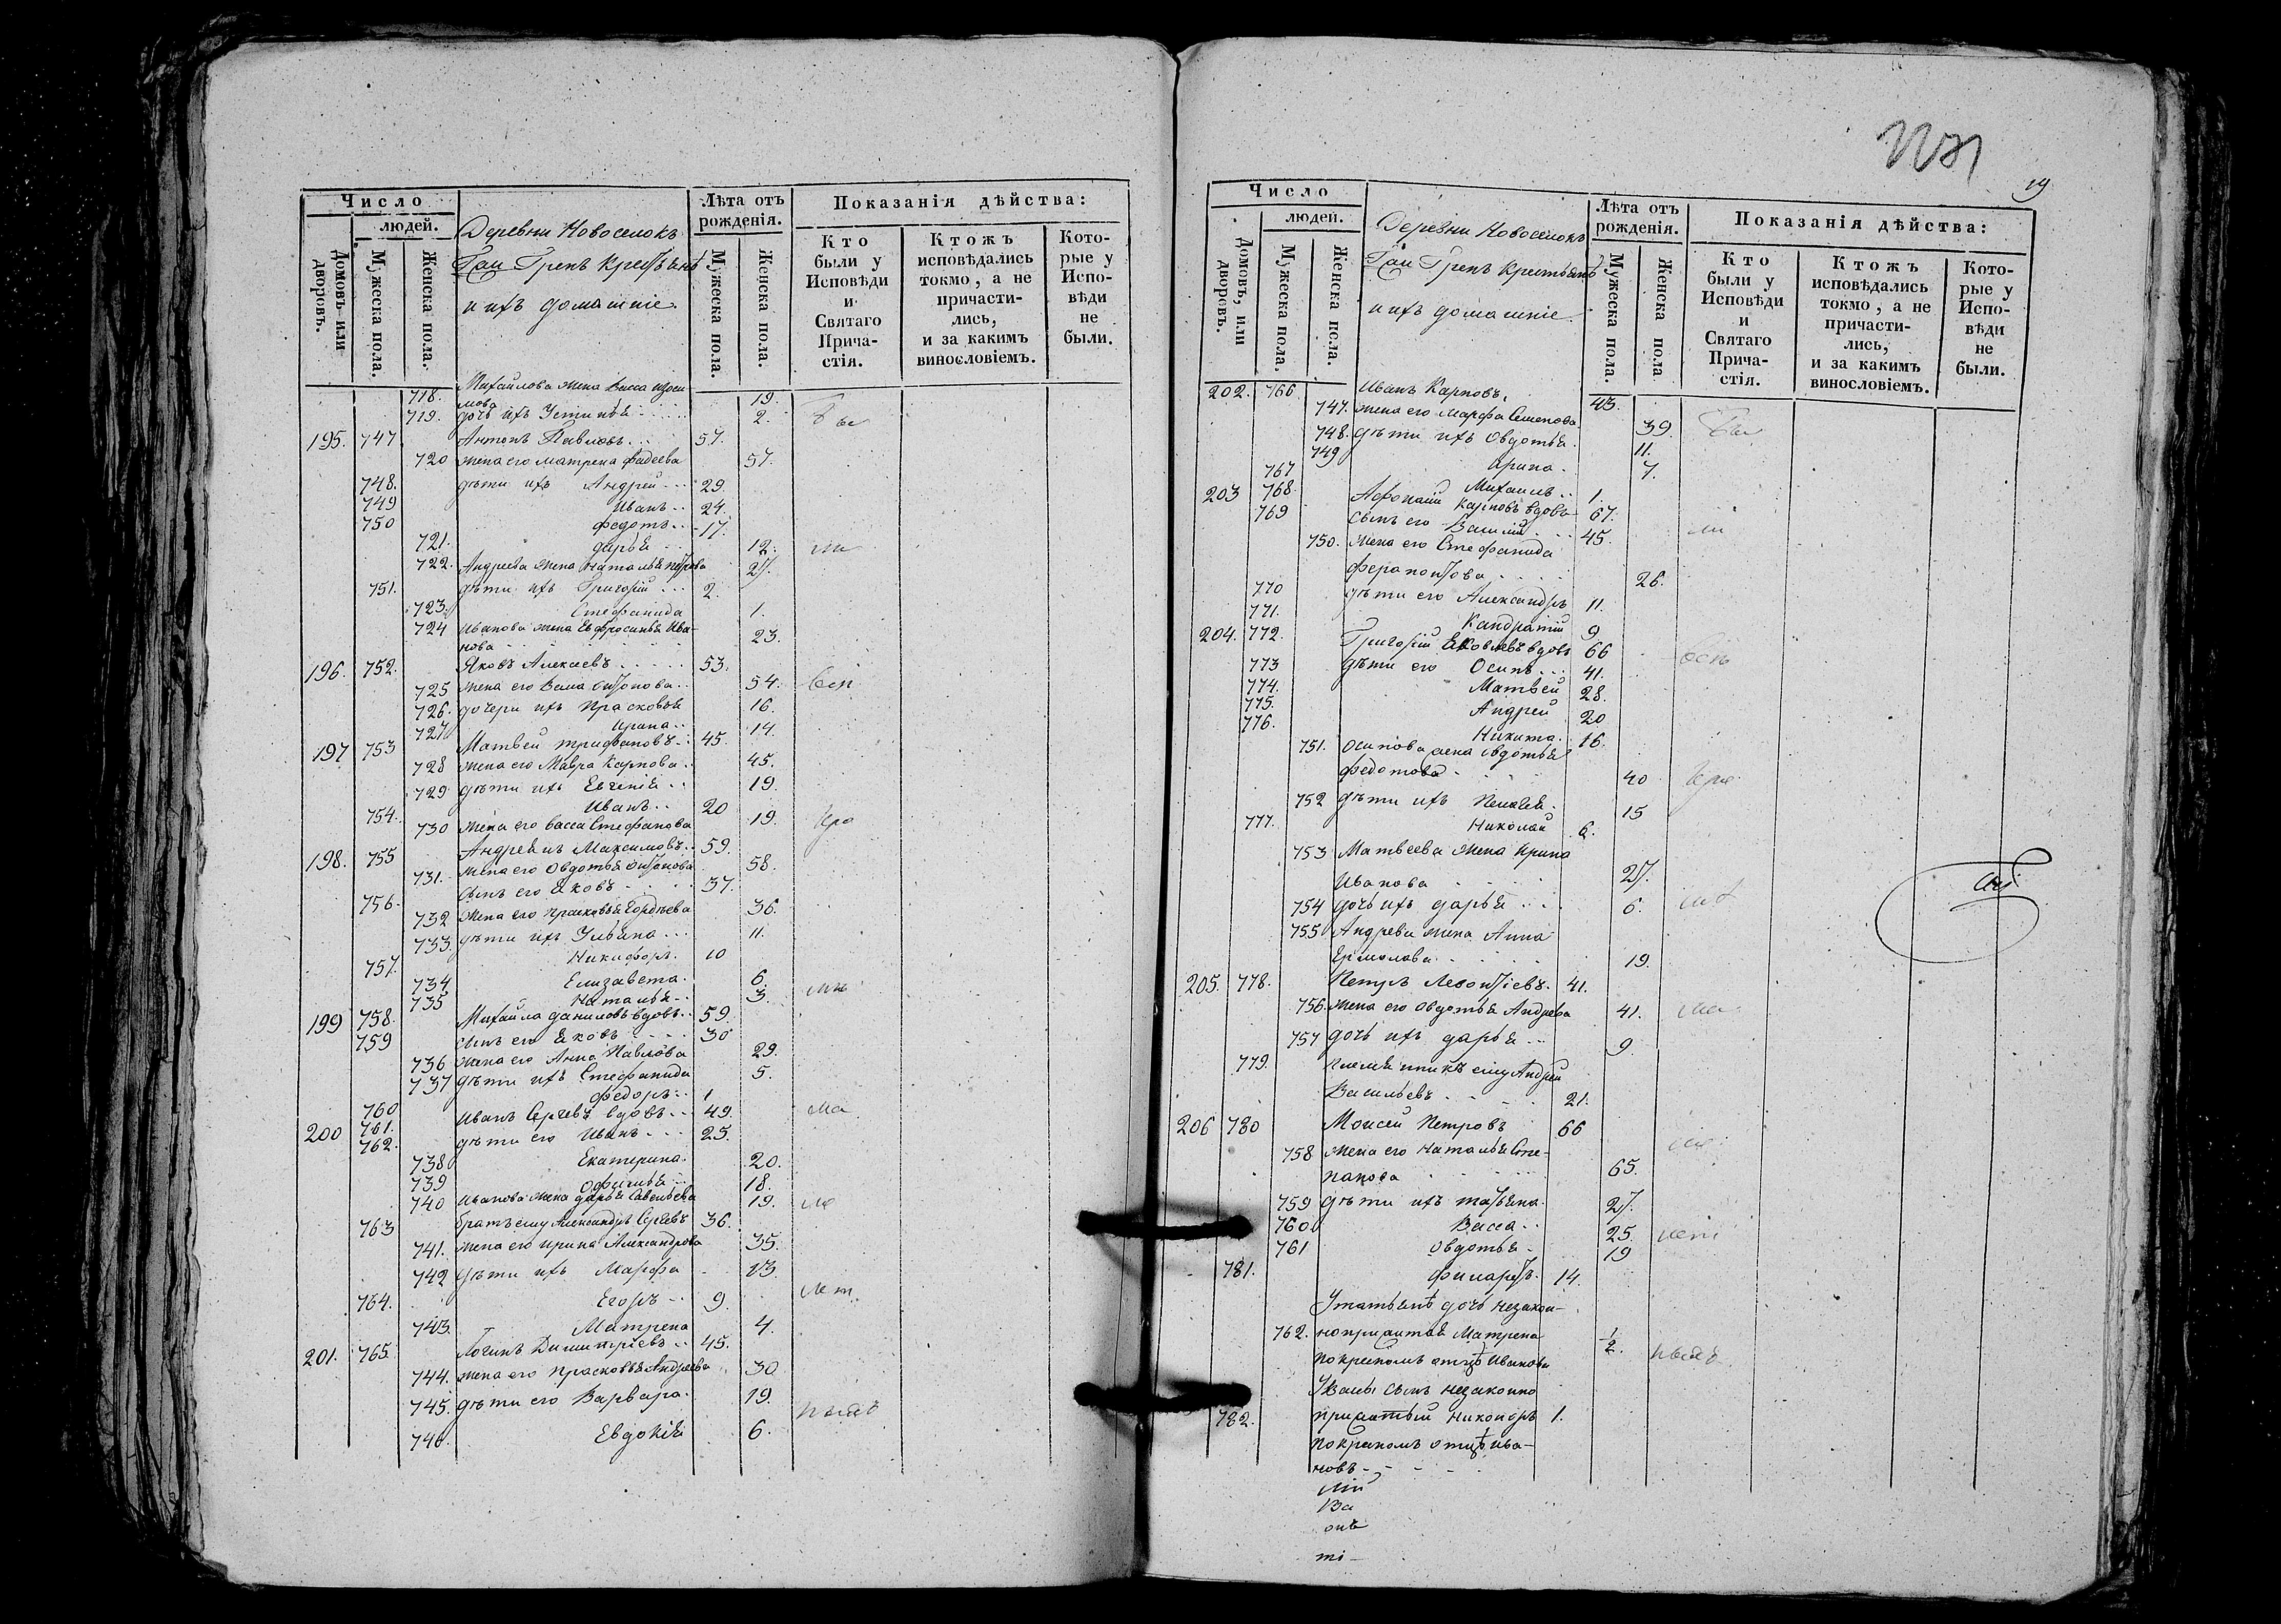 Число
людей.
Домовъ или дворовъ.
Мужеска пола.
Женска пола.
Деревни Новоселокъ
Гаи Грепъ крестьянѣ
и ихъ домашніе.
Лѣта отъ рожденія.
Мужеска пола.
Женска пола.
Показанія дѣйства:
Кто были у Исповѣди и Святаго Прича-стія.
Ктожъ исповѣдались токмо, а не причасти-лись, и за какимъ винословіемъ.
Кото-рые у Испо-вѣди не были.
718. Михайлова жена Васса 19.
719. дочь ихъ Устинья 2. бы
195. 747 Антонъ Павловъ 57.
720 жена его Матрена Фадеева 57.
748. дѣти ихъ Андрей 29.
749 Иванъ 24.
750 Федотъ 17.
721. Дарья 12. ли
722. Андреева жена Наталья Петрова 27.
751. дѣти ихъ Григорій 2.
723. Стефанида 1.
724 Иванова жена Евфросинья Ива-
нова 23.
196. 752. Яковъ Алексѣевъ 53.
725 жена его Васса Антонова 54.
726. дочери ихъ Прасковья 16.
727 Ирина 14.
197 753 Матвей Трифановъ 45.
728 жена его Мавра Карпова 45.
729 дѣти ихъ Евгенія 19.
754. Иванъ 20
730 жена его Васса Стефанова 19.
198. 755 Андреянъ Максимовъ 59.
731. жена его Овдотья Антонова 58.
756. сынъ его Яковъ 37.
732 жена его Прасковья Гордѣева 36.
733 дѣти ихъ Ульяна 11.
757. Никифоръ 10
734 Елизавета 6.
735 Наталья 3.
199 758. Михайла Даниловъ вдовъ 59.
759 сынъ его Яковъ 30
736 жена его Анна Павлова 29.
737 дѣти ихъ Стефанида 5.
760 Федоръ 1
200 761. Иванъ Сергѣевъ вдовъ 49.
762. дѣти его Иванъ 25.
738 Екатерина 20.
739 Офимья 18.
740 Иванова жена Дарья Савельева 19.
763 братъ ему Александръ Сергѣевъ 36.
741. жена его Ирина Александрова 35.
742 дѣти ихъ Марфа 13.
764. Егоръ 9.
743. Матрена 4.
201. 765. Логинъ Димитріевъ 45.
744. жена его Прасковья Андреева 30
745. дѣти его Варвара 19.
746. Евдокія 6.
19
Число
людей.
Домовъ, или дворовъ.
Мужеска пола.
Женска пола.
Деревни Новоселокъ
Гаи Грепъ крестьянѣ
и ихъ домашніе
Лѣта отъ рожденія.
Мужеска пола.
Женска пола
Показанія дѣйства:
Кто были у Исповѣди и Святаго Прича-стія.
Ктожъ исповѣдались токмо, а не причасти-лись, и за какимъ винословіемъ.
Кото-рые у Испо-вѣди не были.
202. 766 Иванъ Карповъ 43.
747. жена его Марфа Семенова 39. бы
748. дѣти ихъ Овдотья 11.
749 Арина 7.
767 Михаилъ 1.
203 768. Афонасій Карповъ вдовъ 67.
769 сынъ его Василій 45. ли
750. жена его Стефанида
Ферапонтова 26.
770 дѣти его Александръ 11.
771. Кандратій 9
204. 772. Григорій Яковлевъ вдовъ 66
773 дѣти его Осипъ 41.
774. Матвей 28.
775. Андрей 20
776. Никита 16.
751. Осипова жена Овдотья
Федотова 40
752 дѣти ихъ Пелагея 15
777. Николай 6.
753 Матвеева жена Ирина
Иванова 27.
754 дочь ихъ Дарья 6.
755 Андреева жена Анна
Ермолова 19.
205. 778. Петръ Леонтіевъ 41.
756. жена его Овдотья Андреева 41.
757 дочь ихъ Дарья 9.
779. племянникъ ему Андрей
Васильевъ 21.
206 780 Моисей Петровъ 66
758 жена его Наталья Сте-
панова 65.
759 дѣти ихъ Татьяна 27.
760 Васса 25.
761 Овдотья 19
781. Филаретъ 14.
У Татьянѣ дочь незакон-
762. ноприжитая Матрена 1/2.
по крестномъ отцѣ Иванова
У Вассы сынъ незаконно
782. прижитый Никоноръ 1.
по крестномъ отцѣ Ива-
новъ
лій
Ва
онъ
ті